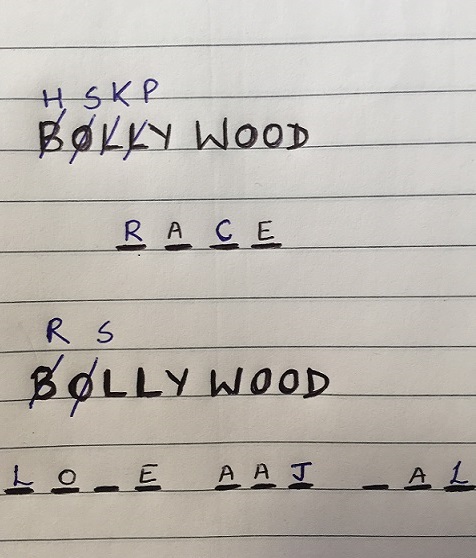 H S K P
BOLLY WOOD
R A C E
R S
BOLLY WOOD
L O _ E A A J _ A L